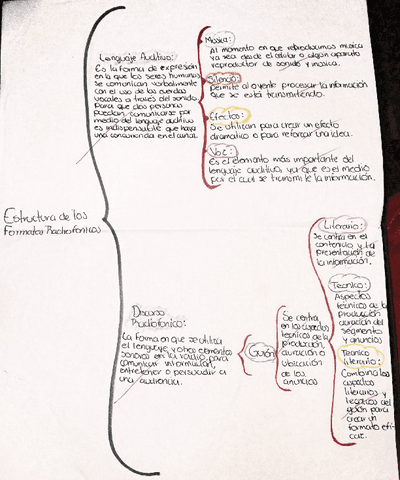 Estructura de los
Formatos Radiofónicos
Lenguaje Auditivo:
Es la forma de expresión
en la que los seres humanos
se comunican verbalmente
con el uso de las cuerdas
vocales a través del sonido.
Para que dos personas
puedan comunicarse por
medio del lenguaje auditivo
es indispensable que haya
una concurrencia en el canal.
Música:
Al momento en que reproducimos música
ya sea desde el celular o algún aparato
reproductor de sonido y música.
Silencio:
Permite al oyente procesar la información
que se está transmitiendo.
Efectos:
Se utilizan para crear un efecto
dramatico o para reforzar una idea.
Voz:
Es el elemento más importante del
lenguaje auditivo, ya que es el medio
por el cual se transmite la información.
Discurso
Radiofonico:
La forma en que se utiliza
el lenguaje y otros elementos
sonoros en la radio, para
comunicar información,
entretener o persuadir a
una audiencia.
Guión
Se centra
en los aspectos
tecnicos de la
producción
duración o
ubicación
de los
anuncios
Literario:
Se centra en el
contenido y la
presentación de
la información.
Tecnico:
Aspectos
técnicos de la
producción
duración del
segmento
y anuncios
Tecnico
literario:
Combina los
aspectos
literarios y
del
guión para
crear un
formato efi-
caz.